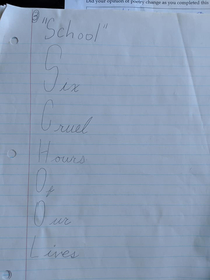 Did your opinion of poetry change as you completed this
"School"
Six
Cruel
Hours
Of
Our
Lives